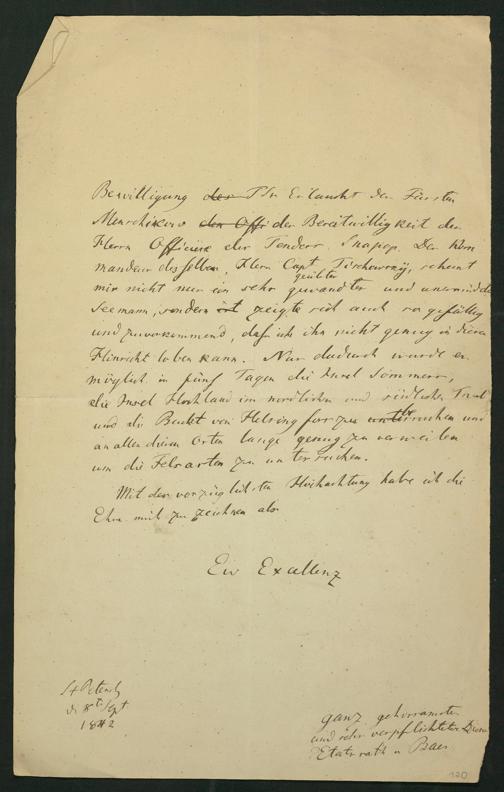 Bewilligung der Ihr Erlaucht der Fürsten
Menschikow den Offi der Bereitwilligkeit der
Herrn Officiere der Tender Snapop. Der Kom
mandeur desselben, Herr Capt
mir nicht nur ein sehr geübter gewandter und
Seemann, sondern ist zeigte sich auch so gefällig
und zuvorkommend, dass ich ihn nicht genug in dieser
Hinsicht loben kann. Nur dadurch wurde es
möglich in fünf Tagen die Insel Sommers,
die Insel Hochland im nördlichen und südlichen
und die von Helsingfors zu untersuchen und
an allen diesen Orten lange genug zu verweilen
um die Felsarten zu untersuchen.
Mit der vorzüglichsten Hochachtung habe ich die
Ehre mich zu zeichnen als
Ew Excellenz
St Petersb
d. 8t Sept
1842
ganz gehorsamster
und sehr verpflichteter Diener
Etatsrath v Baer
120